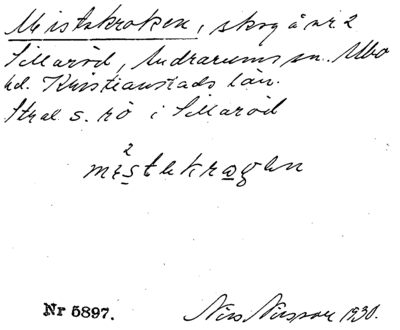 Mistekroken, skog å nr 2
Sillaröd, Andrarums sn. Albo
hd. Kristianstads län.
Strax s. rö i Sillaröd
mistekrogen
Nr 5897. Nils Nilsson 1930.